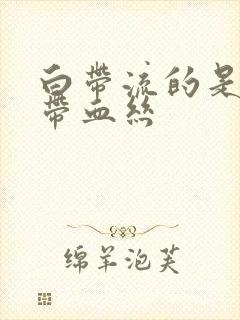 白帶流的是
帶血絲
绵羊泡芙